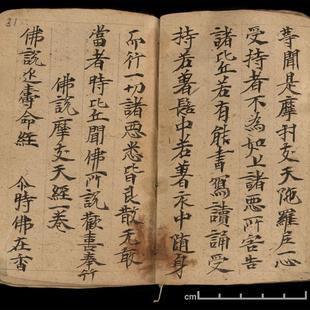 等聞是摩利支天陁羅尼一心
受持者不為如上諸惡所害告
諸比丘若有能書寫讀誦受
持若著髻中若著衣中随身
而行一切諸惡悉皆良散无敢
當者時比丘聞佛所說歡喜奉行
佛說摩支天經一卷
佛說延壽命經 尒時佛在香
31
cm